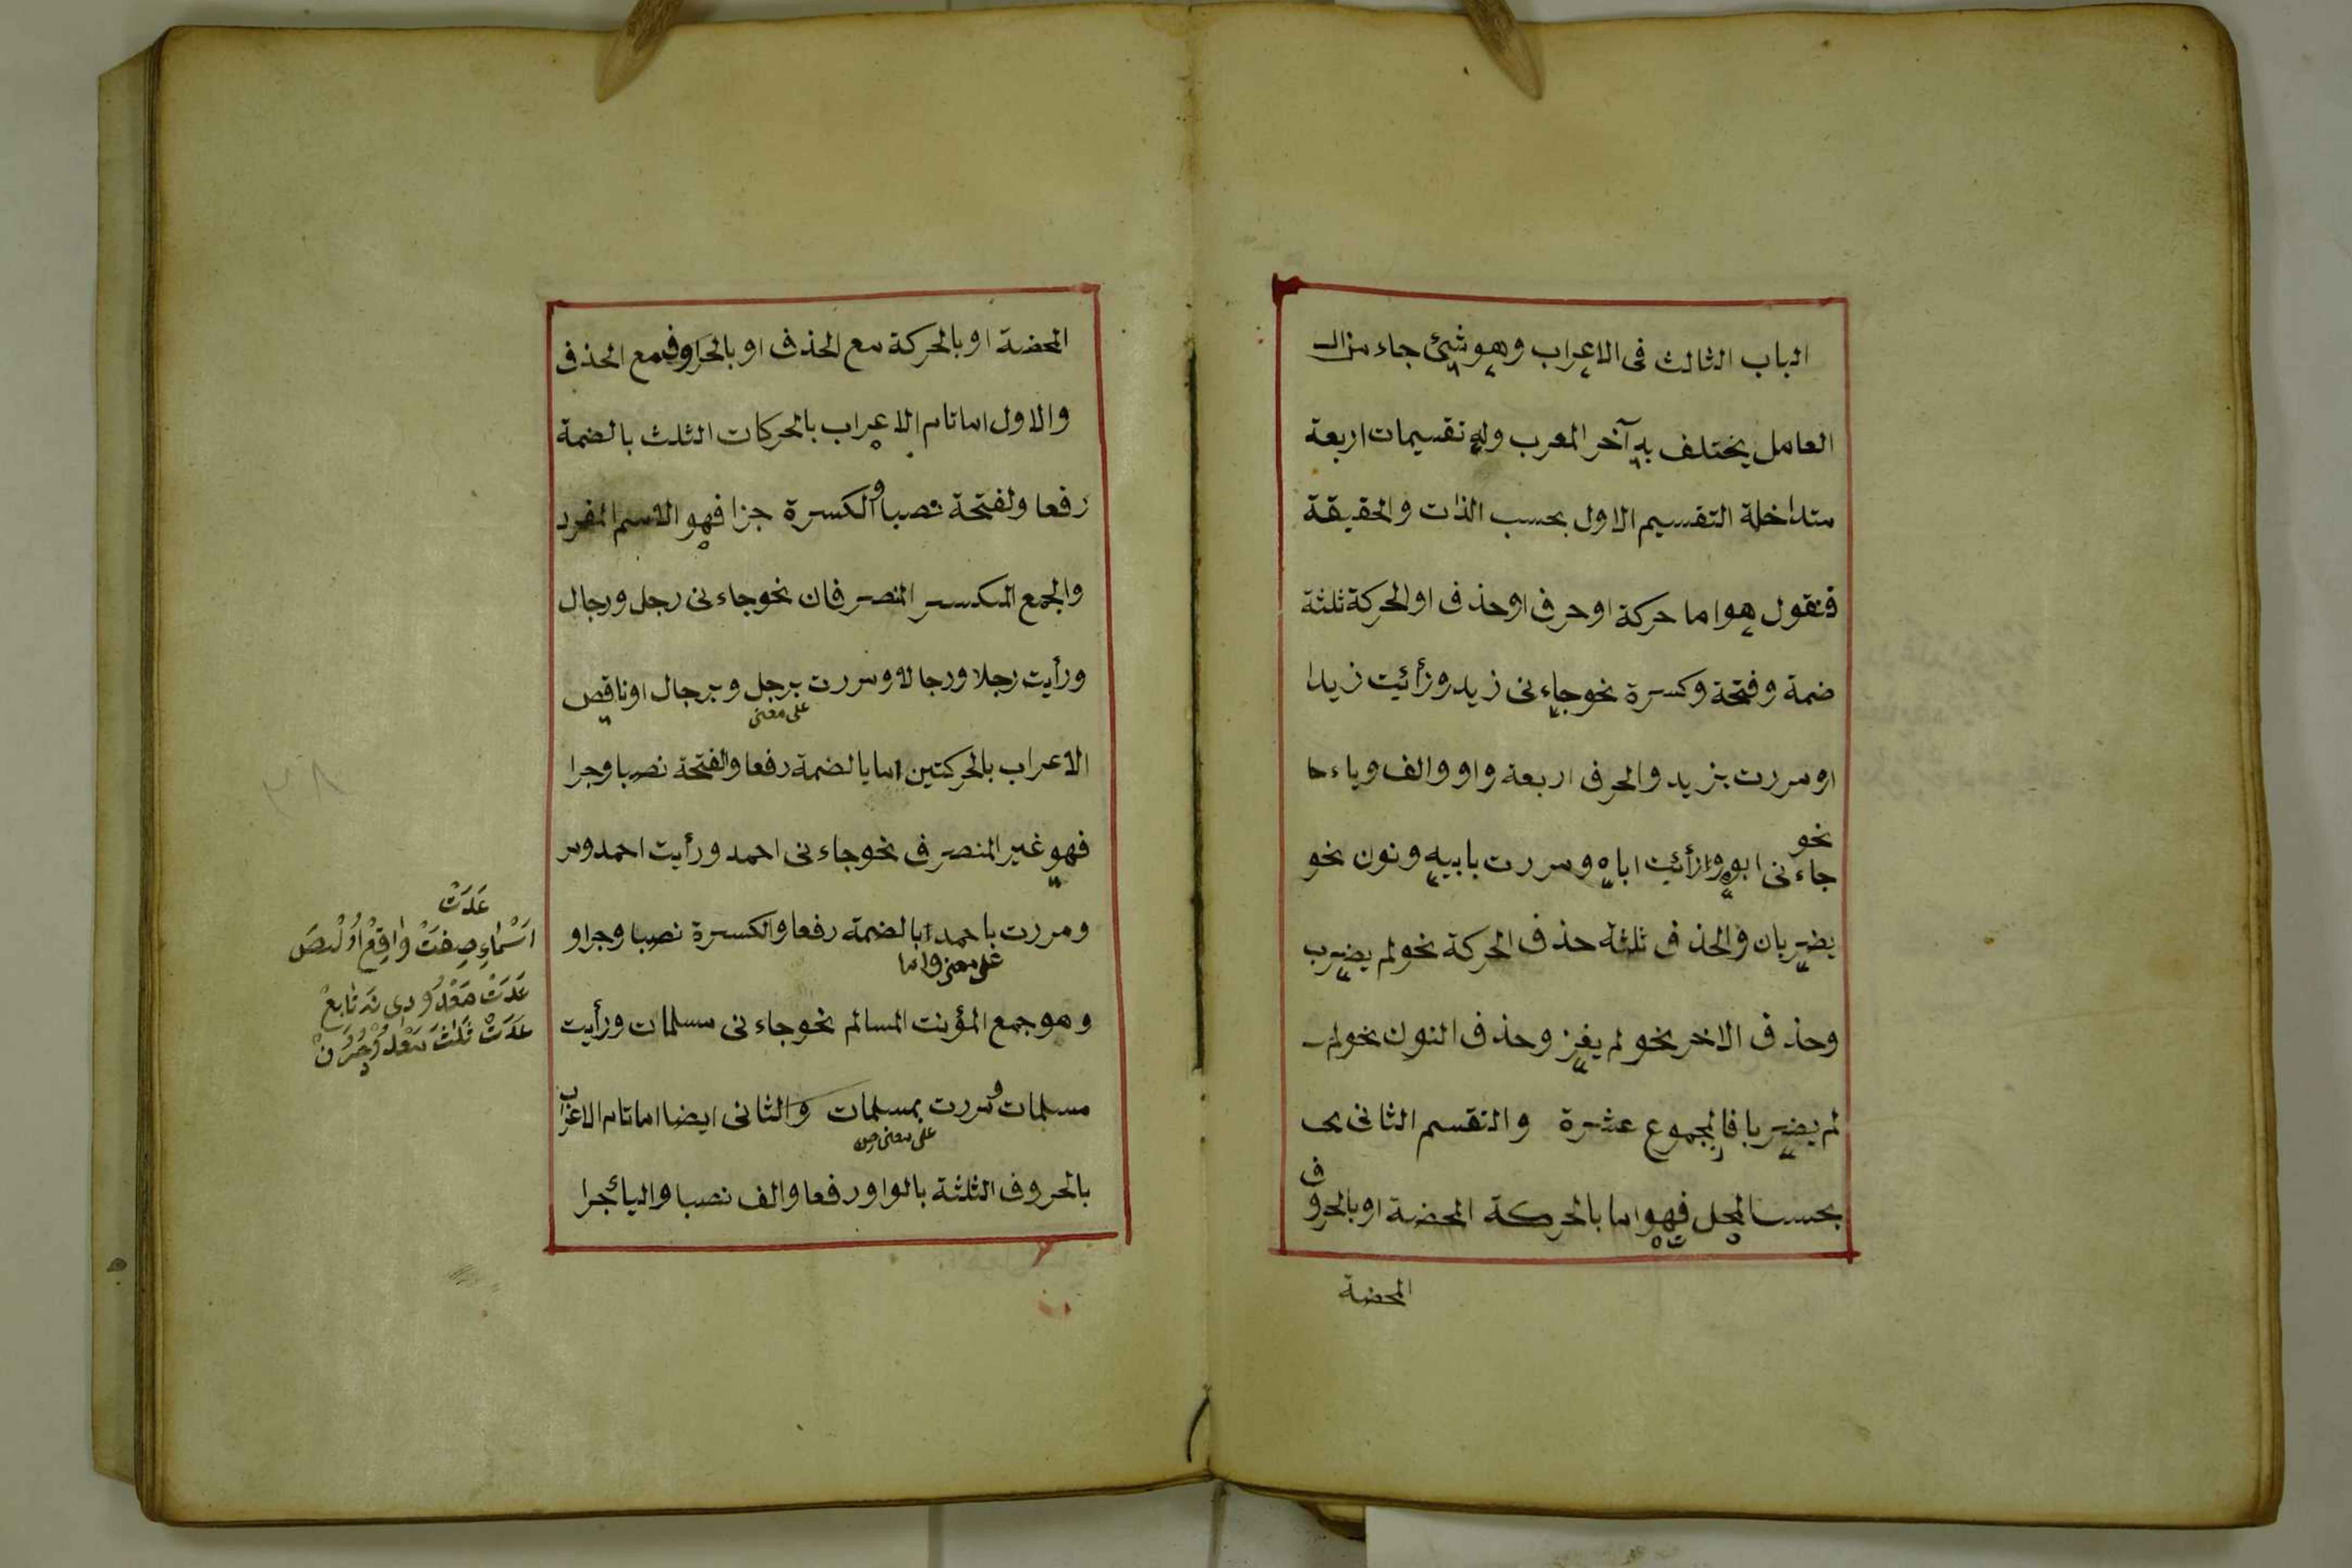 الباب الثالث فى الاعراب وهو شيئ جاء من الـ
العامل يختلف به آخر المعرب وله تقسيمات اربعة
متداخلة التقسيم الاول بحسب الذات والحقيقة
فنقول هو اما حركة او حرف او حذف او الحركة ثلثة
ضمة وفتحة وكسرة نحو جاءنى زيد ورأئيت زيدا
او مررت بزيد والحرف اربعة واو والف وياء
نحو
جاءنى ابوه ورأئيت اباه ومررت بابيه ونون نحو
يضربان والحذف ثلثة حذف الحركة نحو لم يضرب
وحذف الاخر نحو لم يغز وحذف النون نحو لم
لم يضربا فالمجموع عشرة والتقسم الثانى بحـ
بحسب المحل فهو اما بالحركة المحضة او بالحروف
المحضة
المحضة او بالحركة مع الحذف او بالحروف مع الحذف
والاول اما تام الاعراب بالحركات الثلث بالضمة
رفعا ولفتحة نصبا والكسرة جرا فهو الاسم المفرد
والجمع المكسر المنصرفان نحو جاءنى رجل ورجال
ورأيت رجلا ورجالا ومررت برجل وبرجال او ناقص
على معنى
الاعراب بالحركتين اما بالضمة رفعا والفتحة نصبا وجرا
فهو غير المنصرف نحو جاءنى احمد ورأيت احمد ومر
ومررت باحمد ابالضمة رفعا والكسرة نصبا وجرا و
على معنى واما
وهو جمع المؤنث السالم نحو جاءنى مسلمات ورأيت
مسلمات ومررت بمسلمات والثانى ايضا اما تام الاعراب
على معنى من
بالحروف الثلثة بالواو رفعا والف نصبا واليأ جرا
عَدَتْ